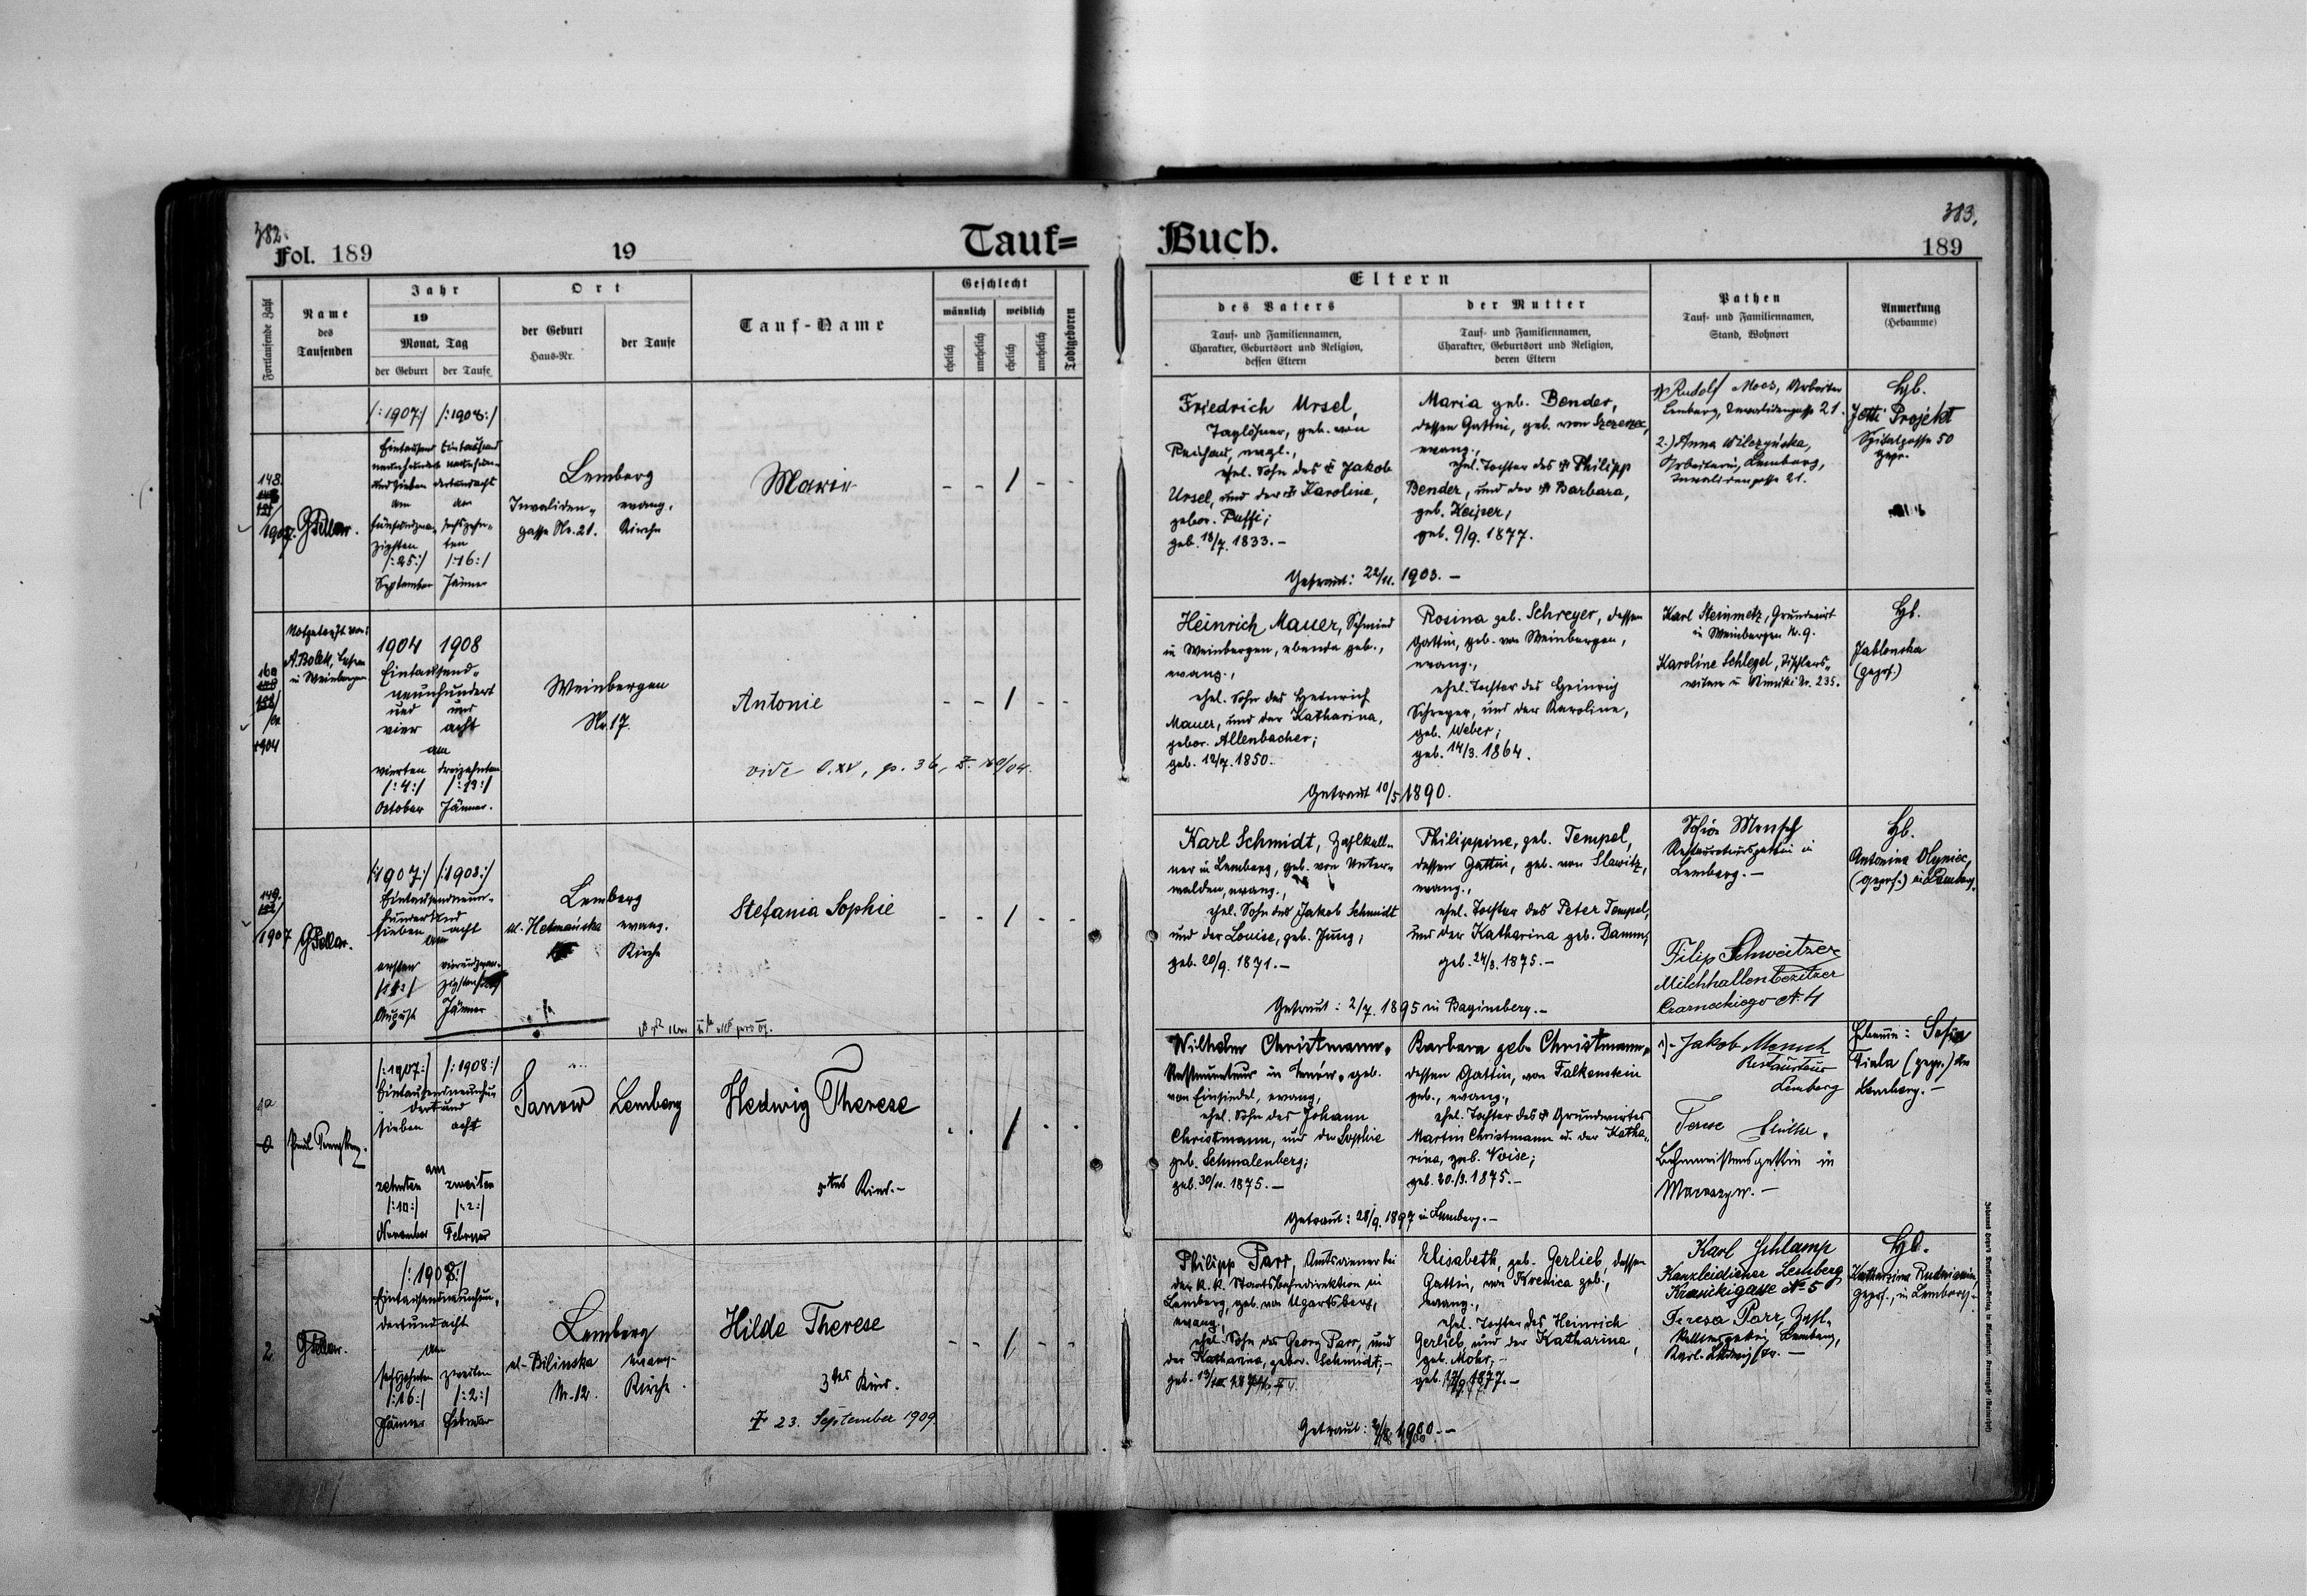 382.
Fol. 189
19
Tauf=
Fortlaufende Zahl
Name
des
Taufenden
Jahr
19
Monat, Tag
der Geburt
der Taufe
Ort
der Geburt
Haus-Nr.
der Taufe
Tauf-Name
Geschlecht
männlich
weiblich
ehelich
unehelich
ehelich
unehelich
Todtgeboren
383.
Buch.
189
Eltern
des Vaters
Tauf- und Familiennamen,
Charakter, Geburtsort und Religion,
dessen Eltern
der Mutter
Tauf- und Familiennamen,
Charakter, Geburtsort und Religion,
deren Eltern
Pathen
Tauf- und Familiennamen,
Stand, Wohnort
Anmerkung
(Hebamme)
148.
1907.
/:1907:/ /:1908:/
Eintausend Eintausend
neunhundert neunhun-
und sieben dertundacht
am am
fünfundzwan- sechszehn-
zigsten ten
/:25:/ /:16:/
September Jänner
Lemberg
Invaliden- evang.
gasse Nr. 21. Kirche
Marie
- - 1 - -
Friedrich Ursel,
Taglöhner, geb. von
evang.,
ehel. Sohn des † Jakob
Ursel, und der † Karoline,
gebor.
geb. 18/7. 1833. -
Maria geb. Bender,
dessen Gattin, geb. von Szczerzec,
evang.,
ehel. Tochter des † Philipp
Bender, und der † Barbara,
geb. Keiper,
geb. 9/9. 1877.
Getraut: 22/11. 1903. -
1) Rudolf Moos, Arbeiter
Lemberg, Invalidengasse 21.
2.) Anna Wilczyńska,
Arbeiterin, Lemberg,
Invalidengasse 21.
Hb.
Jetti Projekt
Spitalgasse 50
gepr.
160
1904
Notgetauft von:
A. Bolek, Lehrer
in Weinbergen
1904 1908
Eintausend-
neunhundert
und und
vier acht
am
vierten dreizehnten
/:4:/ /:13:/
October Jänner.
Weinbergen
Nr. 17.
Antonie
vide
- - 1 - -
Heinrich Mauer, Schmied
in Weinbergen, ebenda geb.,
evang.,
ehel. Sohn des Heinrich
Mauer, und der Katharina,
gebor. Allenbacher;
geb. 12/7. 1850.
Rosina geb. Schreyer, dessen
Gattin, geb. von Weinbergen,
evang.,
ehel. Tochter des Heinrich
Schreyer, und der Karoline,
geb. Weber;
geb. 14/3. 1864.
Getraut 10/5. 1890.
Karl Steinmetz, Grundwirt
in Weinbergen Nr. 9.
Karoline Schlegel, Tischlers-
witwe
Hb.
Jablonska
(geprf.)
149.
1907
/:1907:/ /:1908:/
Eintausendneun-
hundertund
sieben acht
am
ersten vierundzwan-
/:1:/
August Jänner
Lemberg
ul. Hetmańska evang.
Kirche
Stefania Sophie
- - 1 - -
Karl Schmidt, Zahlkell-
ner in Lemberg, geb. von Unter-
walden, evang.,
ehel. Sohn des Jakob Schmidt
und der Louise, geb. Jung;
geb. 20/9. 1871. -
Philippine, geb. Tempel,
dessen Gattin, geb. von Slawitz,
evang.,
ehel. Tochter des Peter Tempel,
und der Katharina geb. Damm;
geb. 24/3. 1875. -
Getraut: 2/7. 1895 in Baginsberg. -
Sofie Mensch
Restaurateursgattin in
Lemberg. -
Filip Schweitzer
Milchhallenbezitzer
Czarneckiego N. 4
Hb.
Antonina Olyniec,
(geprf.) in Lemberg.
/:1907:/ /:1908:/
Eintausendneunhun-
dertund
sieben acht
am
zehnten zweiten
/:10:/ /:2:/
November Februar
Janow Lemberg
Hedwig Therese
5tes Kind. -
- - 1 - -
Wilhelm Christmann,
Restaurateur in Janów, geb.
von Einsiedel, evang.,
ehel. Sohn des Johann
Christmann, und der Sophie
geb. Schmalenberg;
geb. 30/11. 1875. -
Barbara geb. Christmann,
dessen Gattin, von Falkenstein
geb., evang.,
ehel. Tochter des † Grundwirtes
Martin Christmann u. der Katha-
rina, geb. Voise;
geb. 20./3. 1875. -
Getraut: 28/9. 1897 in Lemberg. -
1) - Jakob Mensch
Restaurateur
Lemberg
Terese Müller,
Bahnmeistersgattin in
Hebamme: Sofia
Fiala (gepr.)
Lemberg. -
2
/:1908:/
Eintausendneunhun-
dertundacht
am
sechzehnten zweiten
/:16:/ /:2:/
Jänner Februar
Lemberg
ul. Bilinska evang.
Nr. 12. Kirche.
Hilde Therese
3tes Kind.
† 23. September 1909.
- - 1 - -
Philipp Parr, Amtsdiener bei
der k. k. Staatsbahndirektion in
Lemberg, geb. von Ugartsberg,
evang.,
ehel. Sohn des Georg Parr, und
der Katharina, gebor. Schmidt; -
Elisabeth, geb. Gerlieb, dessen
Gattin, von Krenica geb.,
evang.,
ehel. Tochter des Heinrich
Gerlieb, und der Katharina,
geb. Mohr; -
Getraut: 1900. -
Karl Schlamp
Kanzleidiener Lemberg
Krasickigasse № 5
Teresa Parr, Zahl-
kellnersgattin, Lemberg,
Hb.
Katharzina Rudnicka,
geprf., in Lemberg. -